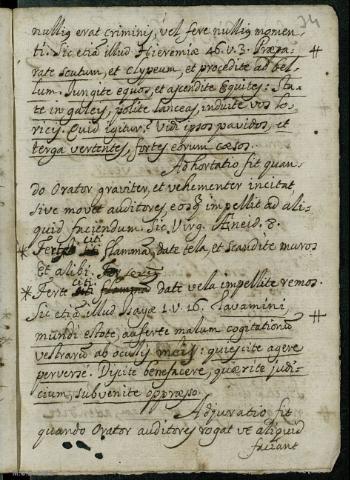 34
nullig erat criminis, vel fere nullig momen-
ti. Sic etiā illud Hieremiæ 46. v. 3. Præpa- #
rate scutum, et clypeum, et procedite ad bel-
lum. Iungite equos, et ascendite Equites: Sta-
te in galeis, polite lanceas, induite vos lo-
ricis. Quid igitur? Vidi ipsos pavidos, et
terga vertentes, fortes eorum cæsos.
Adhortatio fit quan-
do Orator graviter, et vehementer incitat
sive movet auditores eosq̃ impellit ad ali-
quid faciendum. Sic Virg. Æneid. 8.
citi
* Ferte flammā, date tela, et scandite muros
Et alibi.
citi
* Ferte flammā dati vela impellite remos.
Sic etiā illud Isayæ 1. v. 16. Lavamini, #
mundi estote, auferte malum cogitationū
vestrarū ab oculis meis: quiescite agere
perverse. Discite benefacere, quærite judi-
cium, subvenite oppresso.
Adjuratio fit
quando Orator auditores rogat ut aliquid
faciant